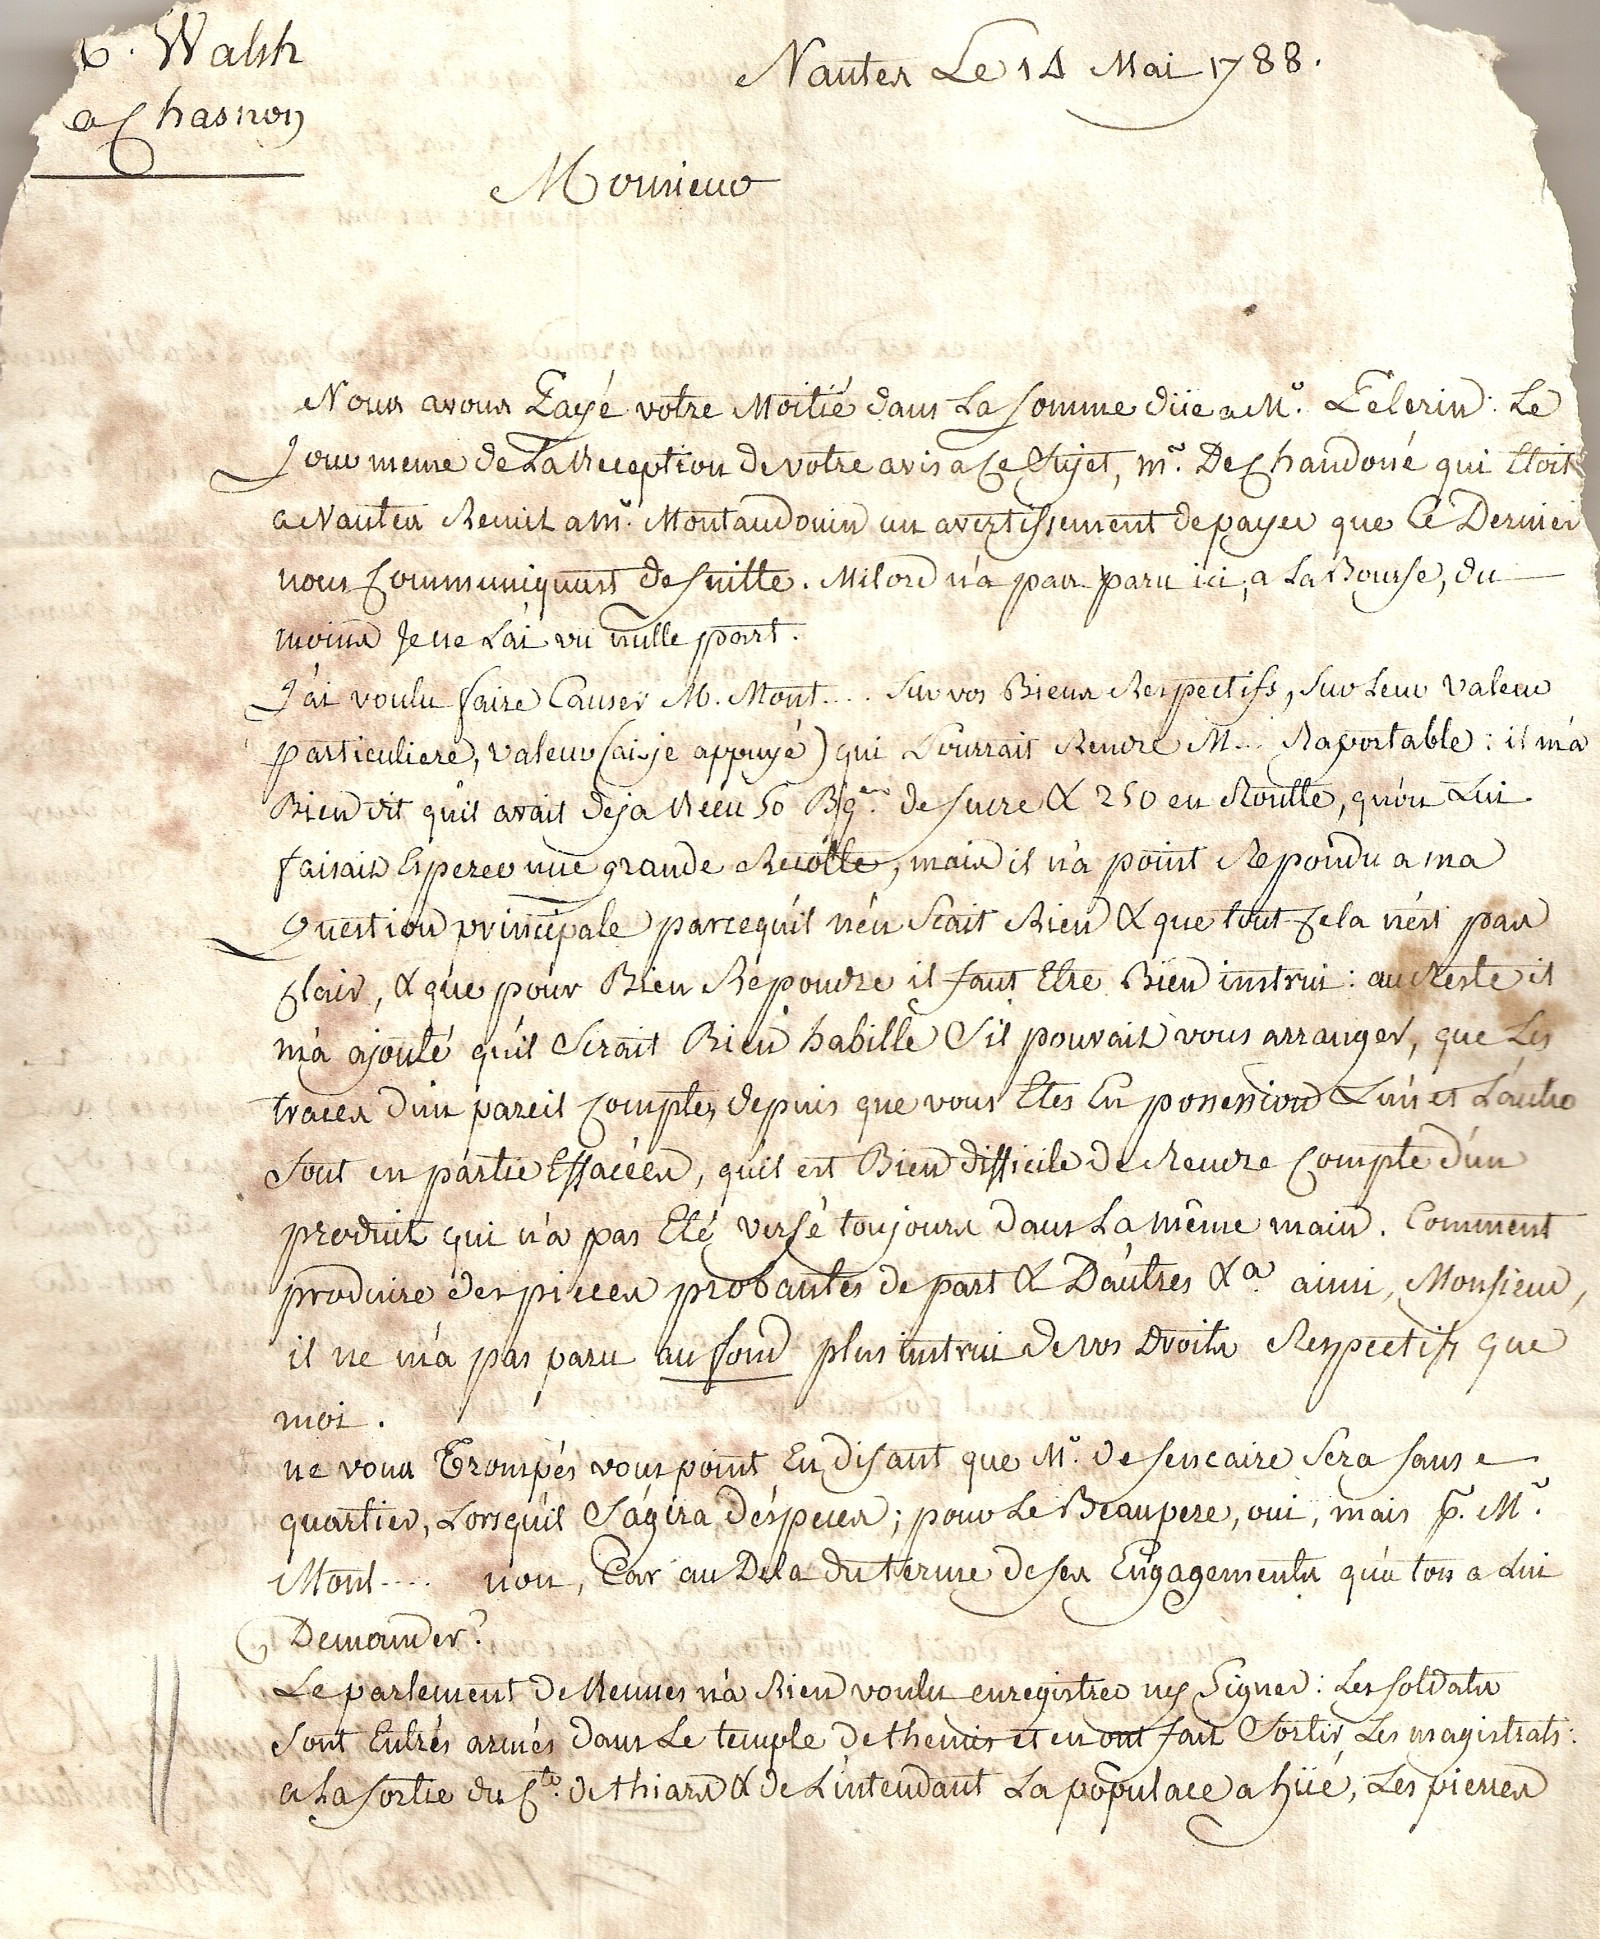 Walsh
a Chasnon
Nantes Le 14 Mai 1788.
Monsieur
Nous avons Payé votre Moitié dans La somme düe a Mr. Pelerin : Le
Jour meme de La Reception de votre avis a Ce Sujet, mr. De Chandoné qui Etoit
a Nantes Remit a Mr. Montaudouin un avertissement de payer que Ce Dernier
nous Communiquast de suitte. Milord n'a pas paru ici, a La Bourse, du
moins Je ne L'ai vû nulle part.
J'ai voulu faire Causer M. Mont.... Sur vos Biens Respectifs, Sur Leur valeur
particuliere, valeur (ai-je appuyé) qui Pourrait Rendre M... Raportable : il m'a
Bien dit qu'il avait deja Reçu 50 Bques de sucre & 250 en Routte, qu'on Lui
faisait Esperer une grande Recolte, mais il n'a point Repondu a ma
Question principale parcequ'il n'en Scait Rien & que tout Cela n'est pas
Clair, & que pour Bien Repondre il faut Etre Bien instrui : au Reste il
m'a ajouté qu'il Serait Bien habille S'il pouvait vous arranger, que Les
traces d'un pareil Compte, depuis que vous Etes En possession L'un et L'autre
Sont en partie Effacées, qu'il est Bien difficile de Rendre Compte d'un
produit qui n'a pas Eté versé toujours dans La même main. Comment
produire des pieces probantes de part & D'autres &a. ainsi, Monsieur,
il ne m'a pas paru au fond plus instrui de vos Droits Respectifs que
moi.
ne vous Trompés vous point En disant que Mr. de sencaire Sera sans
quartier, Lorsqu'il S'agira D'éspeces ; pour Le Beaupere, oui, mais p. Mr.
Mont.... non, Car au Dela du terme de ses Engagements qu'a t'on a Lui
Demander?
Le parlement de Rennes n'a Rien voulu enregistrer ny Signer : Les soldats
Sont Entrés armés dans Le temple de themis et en ont fait Sortir Les magistrats :
a La sortie du Cte. de thiars & de L'intendant La populace a hüé, Les pierres